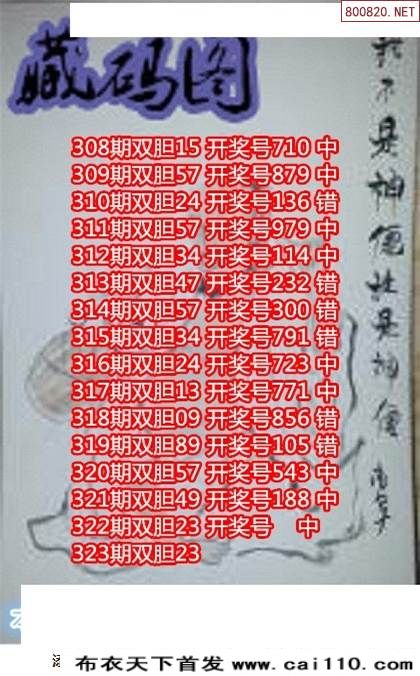 800820.NET
藏码图
我不是神便也是神僊
308期双胆15 开奖号710 中
309期双胆57 开奖号879 中
310期双胆24 开奖号136 错
311期双胆57 开奖号979 中
312期双胆34 开奖号114 中
313期双胆47 开奖号232 错
314期双胆57 开奖号300 错
315期双胆34 开奖号791 错
316期双胆24 开奖号723 中
317期双胆13 开奖号771 中
318期双胆09 开奖号856 错
319期双胆89 开奖号105 错
320期双胆57 开奖号543 中
321期双胆49 开奖号188 中
322期双胆23 开奖号 中
323期双胆23
布衣天下首发 www.cai110.com